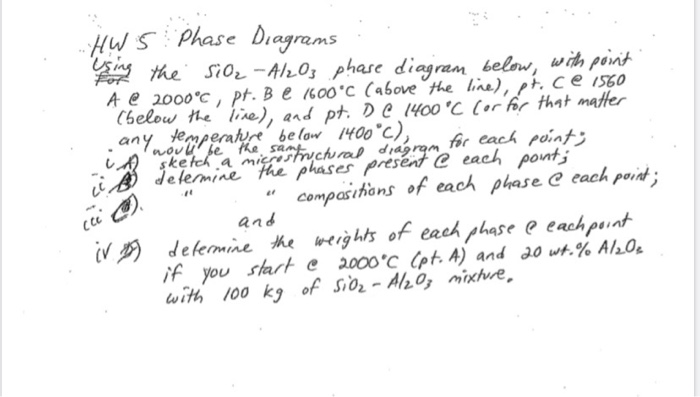 HW 5 : Phase Diagrams
Using the SiO2 - Al2O3 phase diagram below, with point
A @ 2000°C, pt. B @ 1600°C (above the line), pt. C @ 1560
(below the line), and pt. D @ 1400°C (or for that matter
any temperature below 1400°C),
would be the same
i A) sketch a microstructural diagram for each point;
ii B) determine the phases present @ each point;
iii C). " " compositions of each phase @ each point;
and
iv D) determine the weights of each phase @ each point
if you start @ 2000°C (pt. A) and 20 wt.% Al2O3
with 100 kg of SiO2 - Al2O3 mixture.